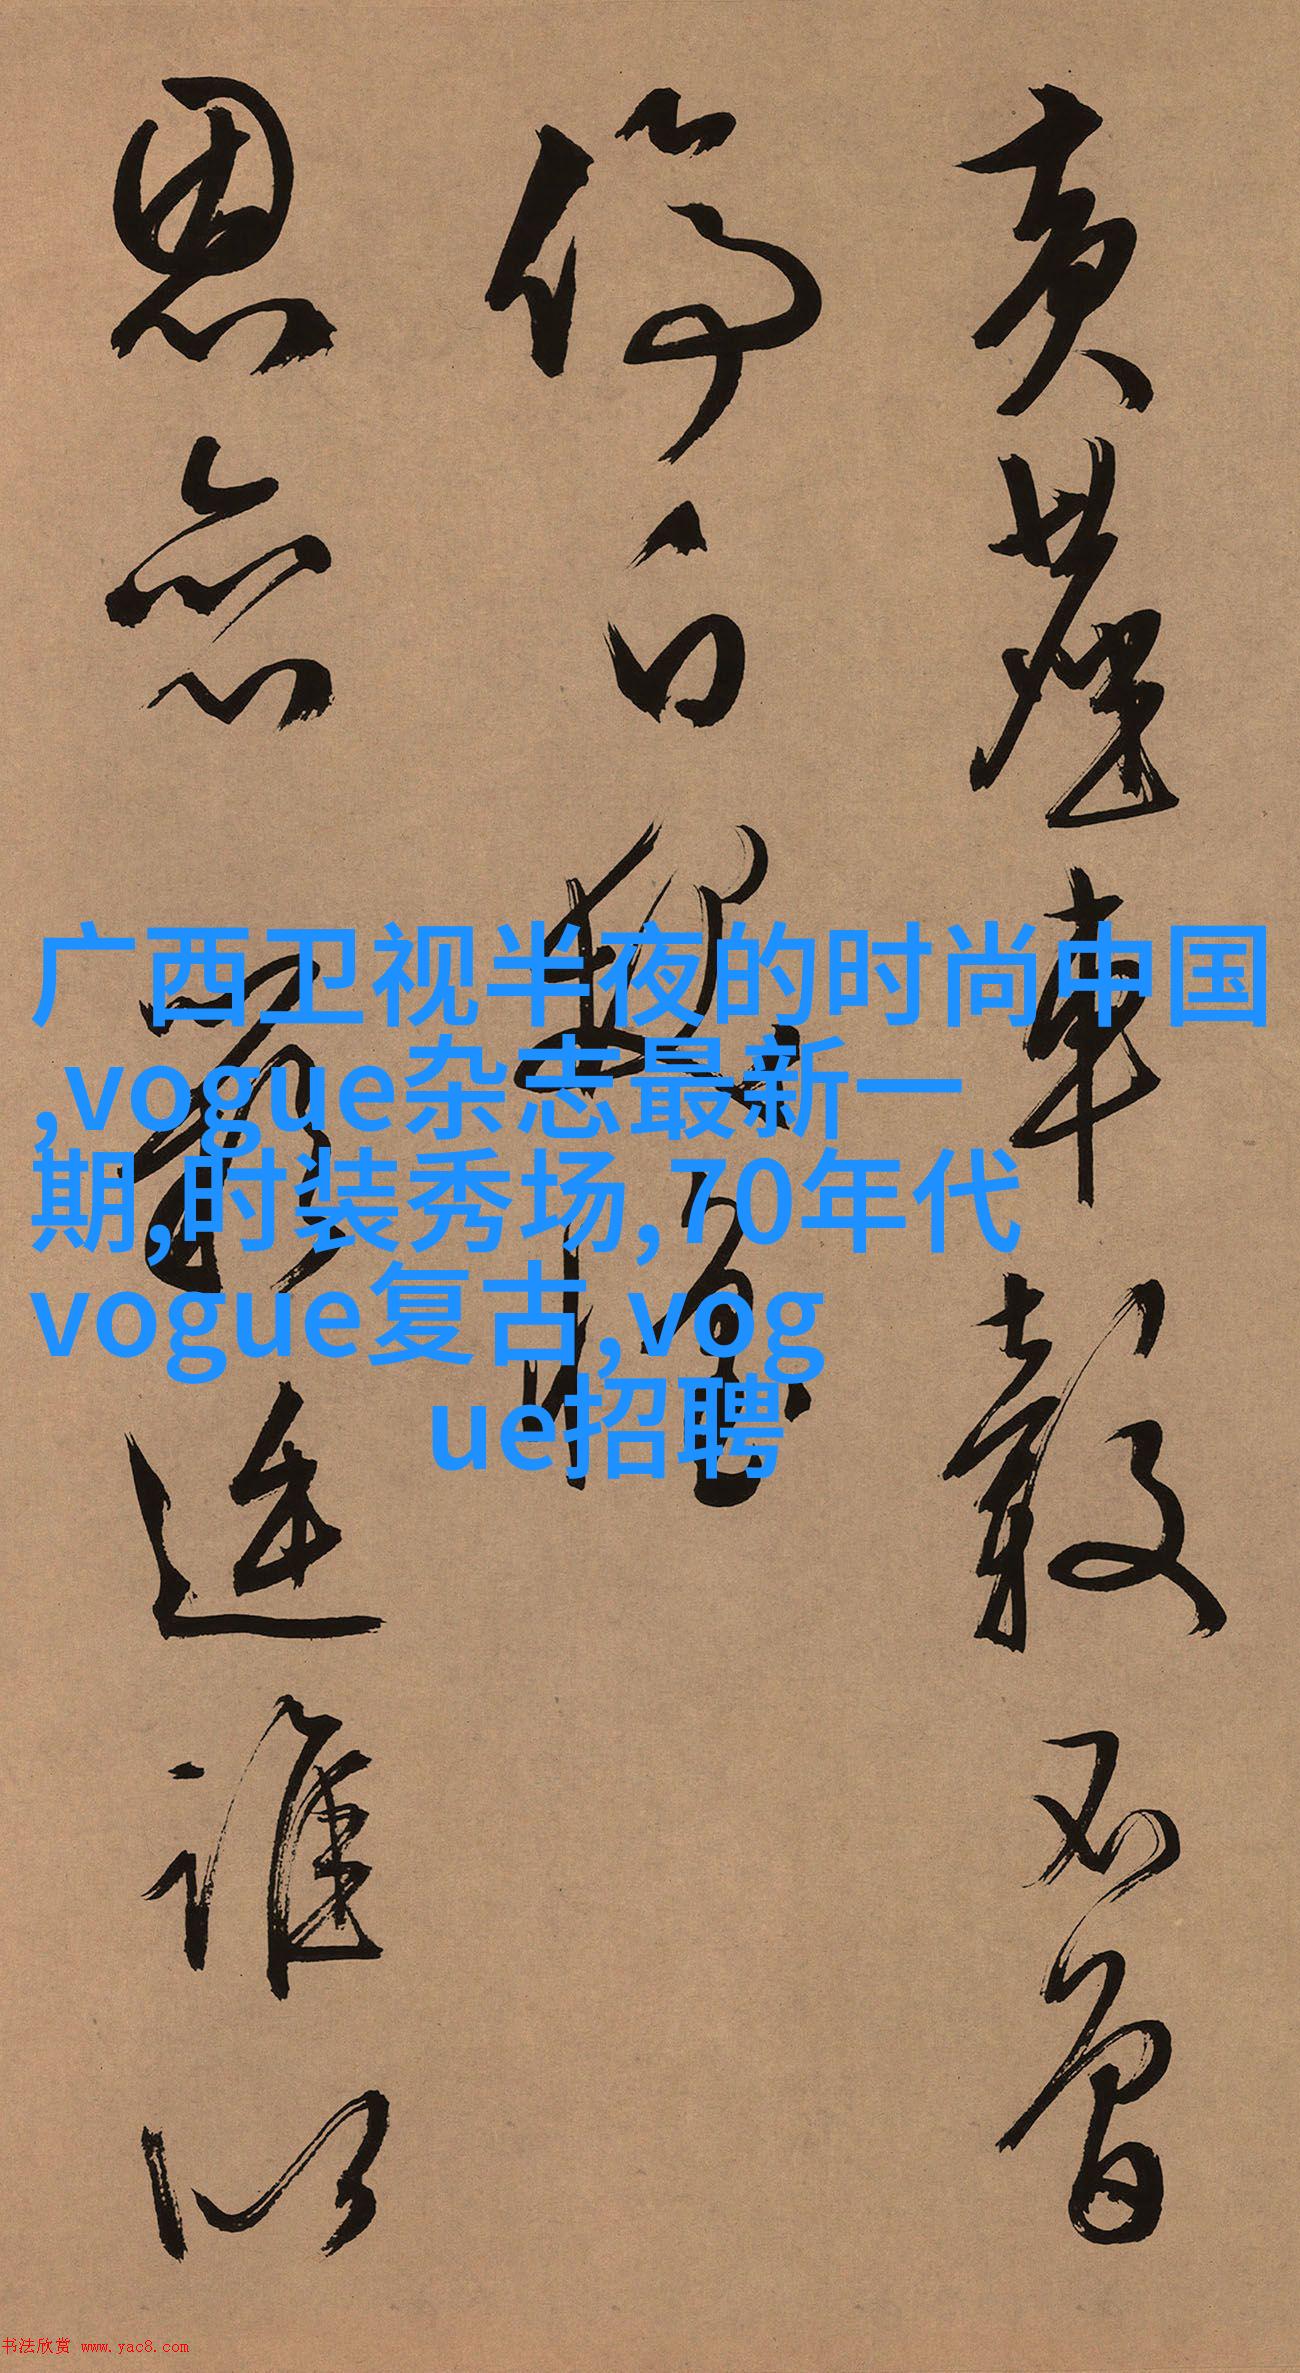 黄塵車轂不曾
停白
恩亦
誰以
广西卫视半夜的时尚中国
,vogue杂志最新一
期,时装秀场,70年代
vogue复古,vog
ue招聘
书法欣赏 www.yac8.com